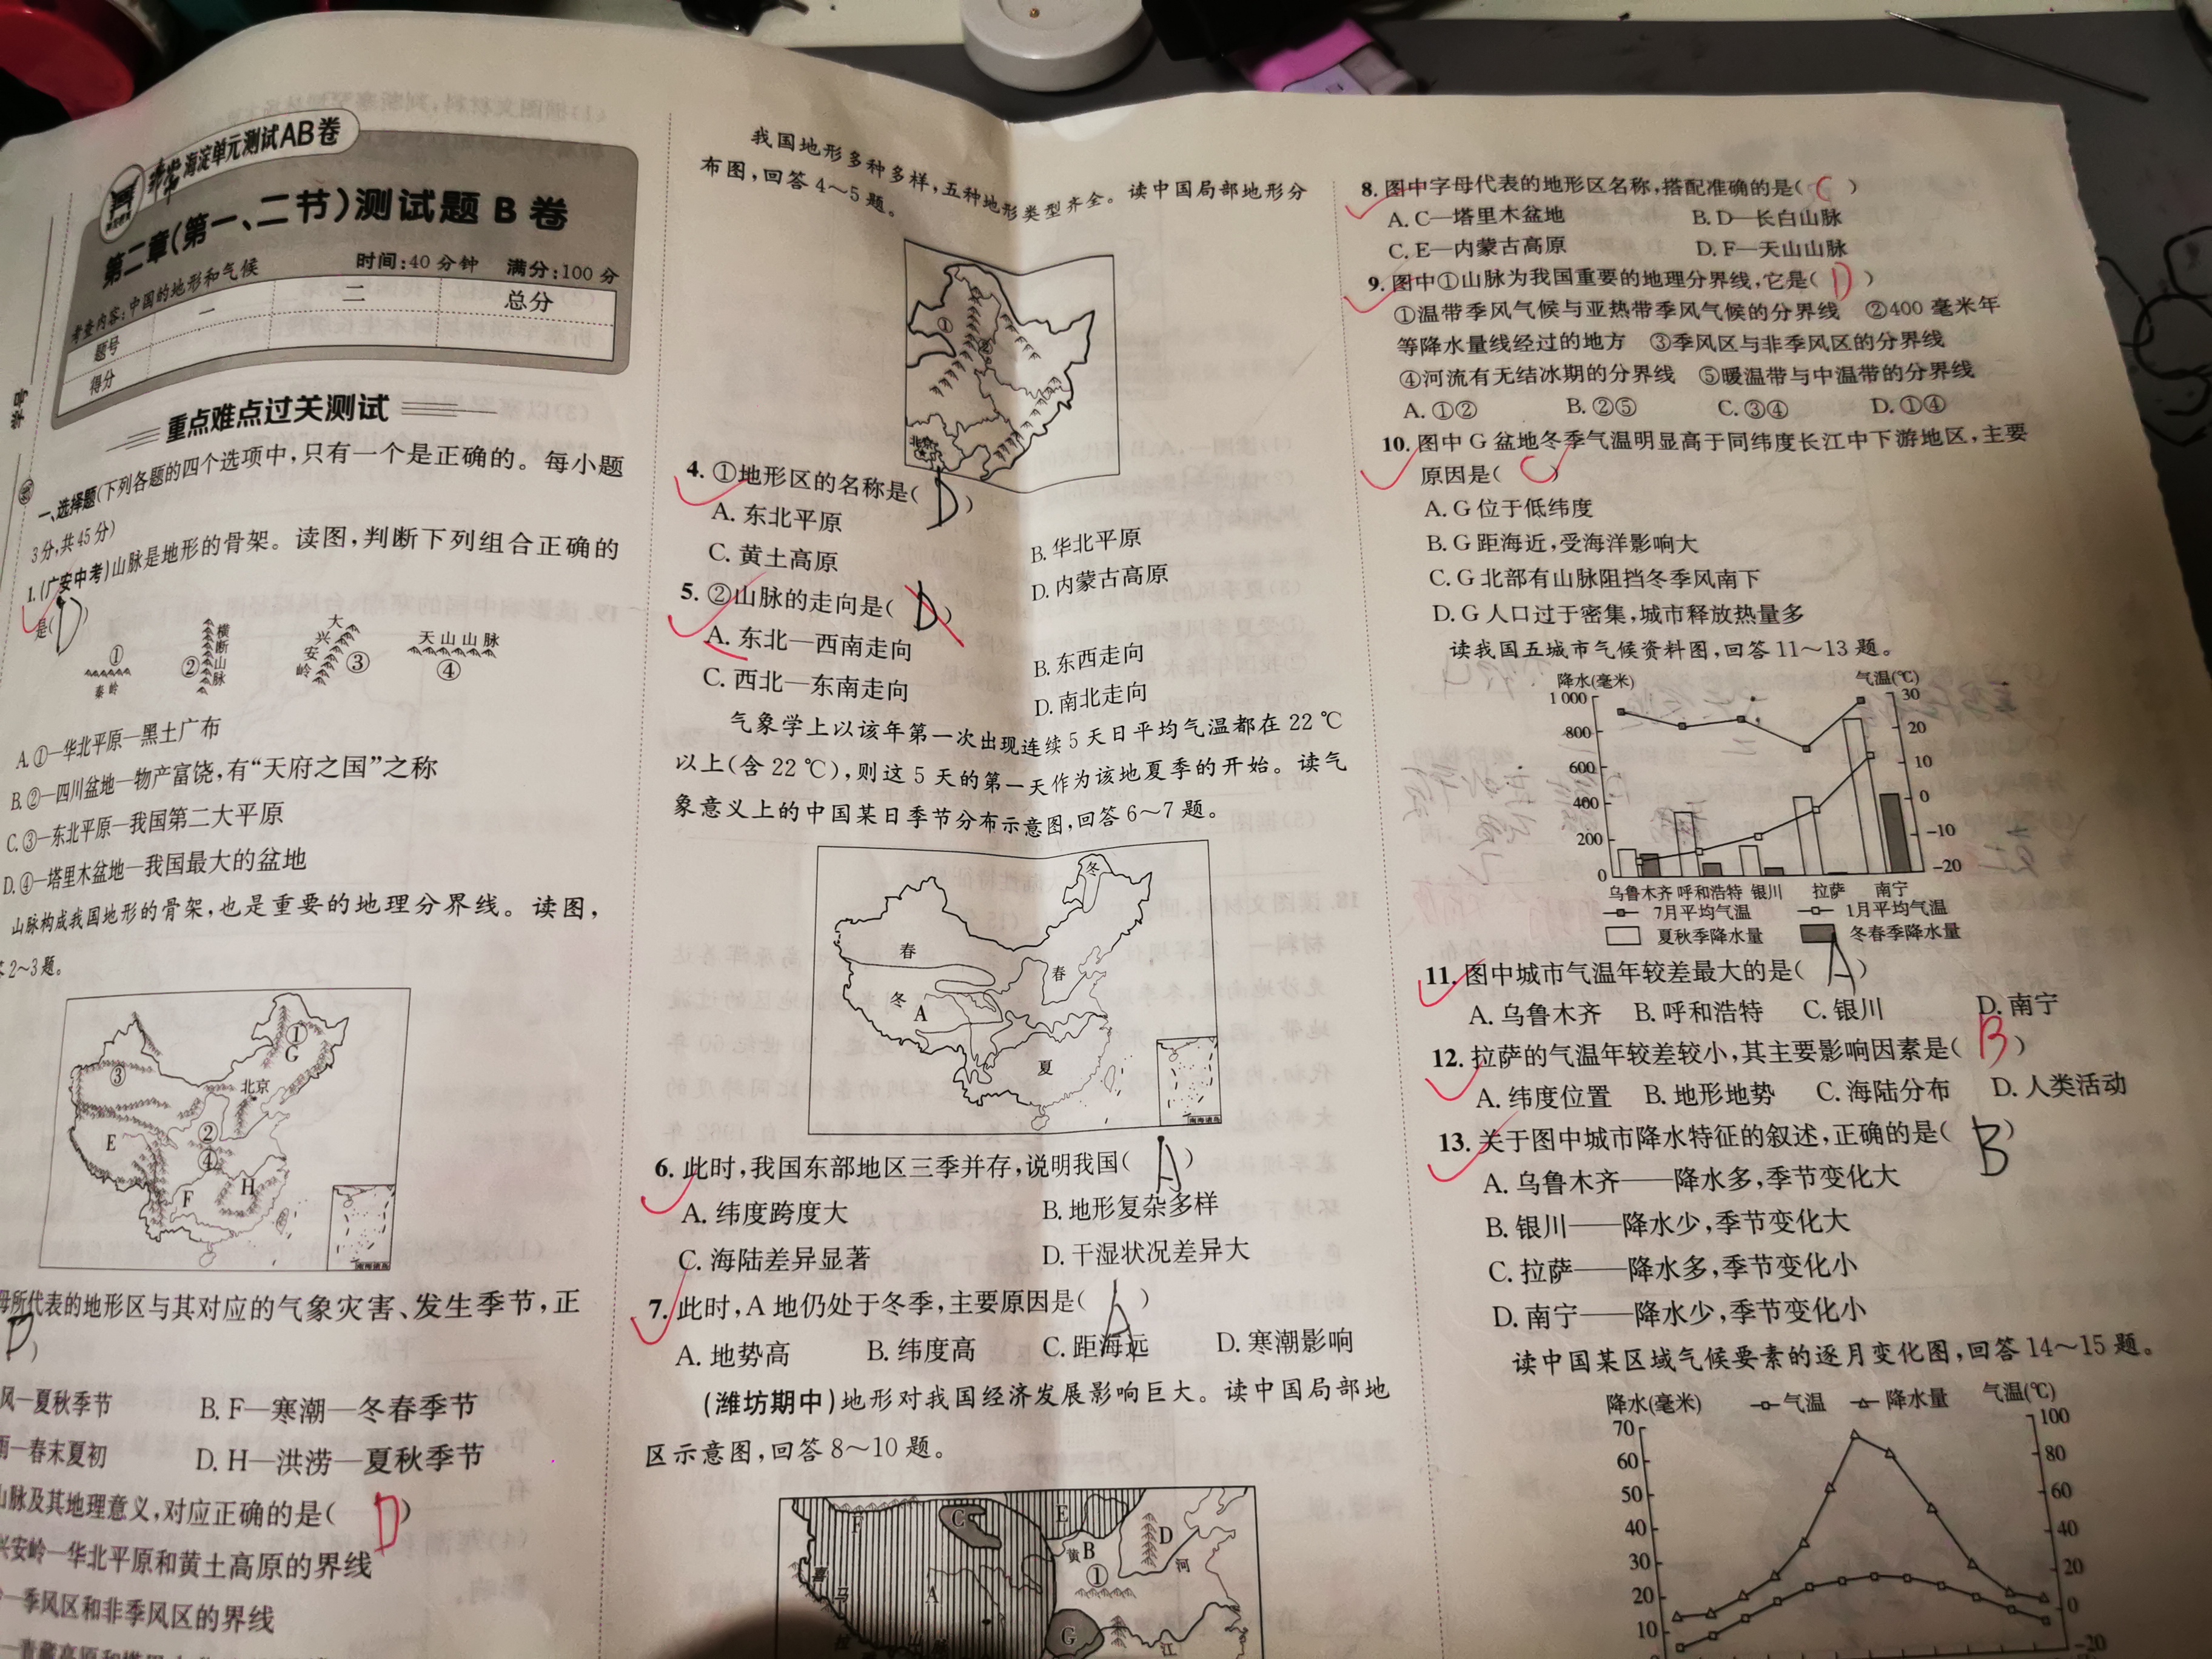 非常海淀单元测试AB卷
第二章(第一、二节)测试题 B 卷
考查内容:中国的地形和气候
时间:40 分钟 满分:100 分
题号 一 二 总分
得分
重点难点过关测试
一、选择题(下列各题的四个选项中,只有一个是正确的。每小题
3分,共45分)
1.(广安中考)山脉是地形的骨架。读图,判断下列组合正确的
是(D)
① 秦岭
② 横断山脉
大兴安岭 ③
天山山脉 ④
A.①—华北平原—黑土广布
B.②—四川盆地—物产富饶,有“天府之国”之称
C.③—东北平原—我国第二大平原
D.④—塔里木盆地—我国最大的盆地
山脉构成我国地形的骨架,也是重要的地理分界线。读图,
2~3题。
① G
③ 北京
E ②
④
F H
南海诸岛
所代表的地形区与其对应的气象灾害、发生季节,正
D)
风—夏秋季节 B. F—寒潮—冬春季节
雨—春末夏初 D. H—洪涝—夏秋季节
山脉及其地理意义,对应正确的是( D )
兴安岭—华北平原和黄土高原的界线
—季风区和非季风区的界线
学号
我国地形多种多样,五种地形类型齐全。读中国局部地形分
布图,回答 4~5 题。
①
②
北京
4. ①地形区的名称是( D )
A. 东北平原 B. 华北平原
C. 黄土高原 D. 内蒙古高原
5. ②山脉的走向是( D )
A. 东北—西南走向 B. 东西走向
C. 西北—东南走向 D. 南北走向
气象学上以该年第一次出现连续 5 天日平均气温都在 22 ℃
以上(含 22 ℃),则这 5 天的第一天作为该地夏季的开始。读气
象意义上的中国某日季节分布示意图,回答 6~7 题。
冬
春 春
冬 A
夏
南海诸岛
6. 此时,我国东部地区三季并存,说明我国( A )
A. 纬度跨度大 B. 地形复杂多样
C. 海陆差异显著 D. 干湿状况差异大
7. 此时,A 地仍处于冬季,主要原因是( A )
A. 地势高 B. 纬度高 C. 距海远 D. 寒潮影响
(潍坊期中)地形对我国经济发展影响巨大。读中国局部地
区示意图,回答 8~10 题。
F C E D
黄 B 河
喜马拉 A ①
山 G 江
8. 图中字母代表的地形区名称,搭配准确的是( C )
A. C—塔里木盆地 B. D—长白山脉
C. E—内蒙古高原 D. F—天山山脉
9. 图中①山脉为我国重要的地理分界线,它是( D )
①温带季风气候与亚热带季风气候的分界线 ②400 毫米年
等降水量线经过的地方 ③季风区与非季风区的分界线
④河流有无结冰期的分界线 ⑤暖温带与中温带的分界线
A. ①② B. ②⑤ C. ③④ D. ①④
10. 图中 G 盆地冬季气温明显高于同纬度长江中下游地区,主要
原因是( C )
A. G 位于低纬度
B. G 距海近,受海洋影响大
C. G 北部有山脉阻挡冬季风南下
D. G 人口过于密集,城市释放热量多
读我国五城市气候资料图,回答 11~13 题。
降水(毫米) 气温(℃)
1 000 30
800 20
600 10
400 0
200 -10
0 -20
乌鲁木齐 呼和浩特 银川 拉萨 南宁
7月平均气温 1月平均气温
夏秋季降水量 冬春季降水量
11. 图中城市气温年较差最大的是( A )
A. 乌鲁木齐 B. 呼和浩特 C. 银川 D. 南宁
12. 拉萨的气温年较差较小,其主要影响因素是( B )
A. 纬度位置 B. 地形地势 C. 海陆分布 D. 人类活动
13. 关于图中城市降水特征的叙述,正确的是( B )
A. 乌鲁木齐——降水多,季节变化大
B. 银川——降水少,季节变化大
C. 拉萨——降水多,季节变化小
D. 南宁——降水少,季节变化小
读中国某区域气候要素的逐月变化图,回答 14~15 题。
降水(毫米) 气温 降水量 气温(℃)
70 100
60 80
50 60
40 40
30 20
20 0
10 -20